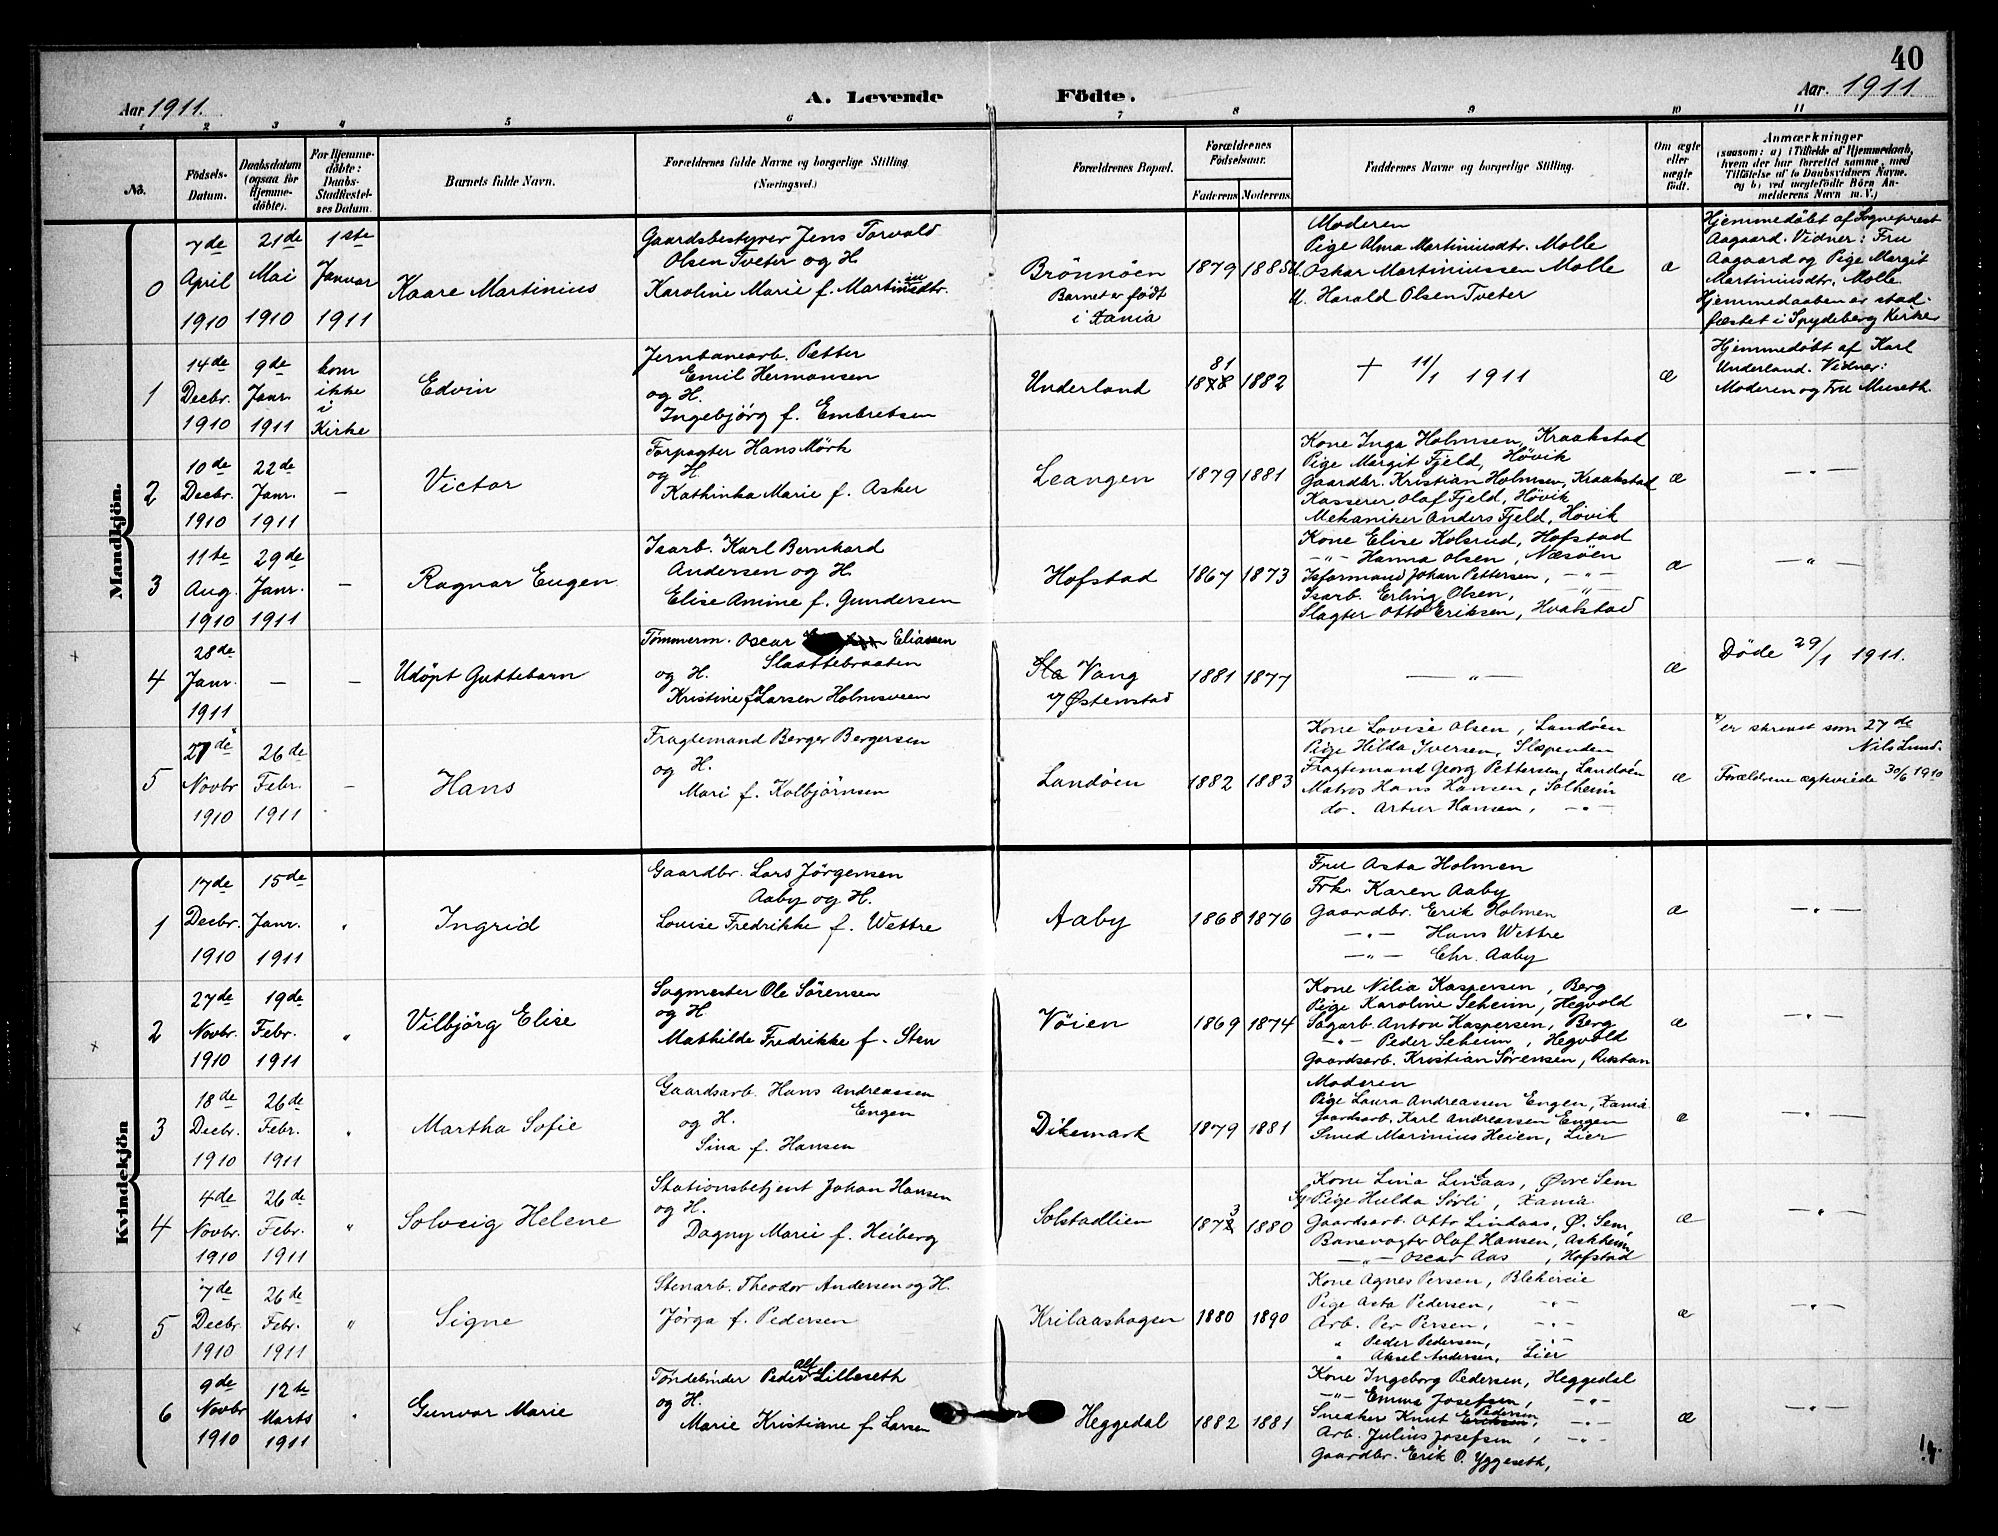 40
Aar 1911.
A. Levende Födte.
Aar. 1911
1 2 3 4 5 6 7 8 9 10 11
No.
Födsels-Datum.
Daabsdatum (ogsaa for Hjemme-döbte).
For Hjemme-döbte: Daabs-Stadfæstel-ses Datum.
Barnets fulde Navn.
Forældrenes fulde Navne og borgerlige Stilling. (Næringsvei.)
Forældrenes Bopæl.
Forældrenes Födselsaar.
Faderens Moderens
Faddernes Navne og borgerlige Stilling.
Om ægte eller uægte födt.
Anmærkninger
(saasom: a) i Tilfælde af Hjemmedaab,
hvem der har forrettet samme, med
Tilföielse af to Daabsvidners Navne,
og b) ved uægtefödte Börn An-
melderens Navn m. V.)
Mandkjön.
0
7de April 1910
21de Mai 1910
1ste Januar 1911
Kaare Martinius
Gaardsbestyrer Jens Torvald
Olsen Tveter og H.
Karoline Marie f. Martiniusdtr.
Brönnöen
Barnet er födt
i Xania
1879 1885
Moderen
Pige Alma Martiniusdtr. Molle
U. Oskar Martiniussen Molle
U. Harald Olsen Tveter
æ
Hjemmedöbt af Sogneprest
Aagaard. Vidner: Fru
Aagaard og Pige Margit
Martiniusdtr. Molle.
Hjemmedaaben er stad-
fæstet i Spydeberg Kirke
1
14de Decbr. 1910
9de Janr. 1911
kom ikke i Kirke
Edvin
Jernbanearb. Petter
Emil Hermansen
og H.
Ingebjörg f. Embretsen
Underland
81
1878 1882
+ 11/1 1911
æ
Hjemmedöbt af Karl
Underland. Vidner:
Moderen og Fru Museth.
2
10de Decbr. 1910
22de Janr. 1911
–
Victor
Forpagter Hans Mörk
og H.
Kathinka Marie f. Asker
Leangen
1879 1881
Kone Inga Holmsen, Kraakstad
Pige Margit Fjeld, Hövik
Gaardbr. Kristian Holmsen, Kraakstad
Kasserer Olaf Fjeld, Hövik
Mekaniker Anders Fjeld, Hövik
æ
– " –
3
11te Aug. 1910
29de Janr. 1911
–
Ragnar Eugen
Isarb. Karl Bernhard
Andersen og H.
Elise Amine f. Gundersen
Hofstad
1867 1873
Kone Elise Kolsrud, Hofstad
– " – Hanna Olsen, Næsöen
Isformand Johan Pettersen, – " –
Isarb. Erling Olsen, – " –
Slagter Otto Eriksen, Hvalstad
æ
– " –
4
28de Janr. 1911
– –
Udöpt Guttebarn
Tömmerm. Oscar Eliassen
Slaattebraaten
og H.
Kristine f. Larsen Holmsveen
Vang
v/ Østenstad
1881 1877
– " –
æ
Döde 29/1 1911.
5
27de Novbr 1910
26de Febr. 1911
–
Hans
Fragtemand Berger Bergersen
og H.
Mari f. Kolbjörnsen
Landöen
1882 1883
Kone Lovise Olsen, Landöen
Pige Hilda Iversen, Slependen
Fragtemand Georg Pettersen, Landöen
Matros Hans Hansen, Solheim
do. Artur Hansen, – " –
æ
x) er skrevet som 27de
Nils Lund.
Forældrene ægteviede 30/6 1910
Kvindekjön
1
17de Decbr. 1910
15de Janr. 1911
"
Ingrid
Gaardbr. Lars Jörgensen
Aaby og H.
Louise Fredrikke f. Wettre
Aaby
1868 1876
Fru Asta Holmen
Frk. Karen Aaby
Gaardbr. Erik Holmen
– " – Hans Wettre
– " – Chr. Aaby
æ
– " –
2
27de Novbr. 1910
19de Febr. 1911
"
Vilbjörg Elise
Sagmester Ole Sörensen
og H
Mathilde Fredrikke f. Sten
Vöien
1869 1874
Kone Nilia Kaspersen, Berg
Pige Karoline Seheim, Hegvold
Sagarb. Anton Kaspersen, Berg
– " – Peder Seheim, Hegvold
Gaardsarb. Kristian Sörensen, Rustan
æ
– " –
3
18de Decbr. 1910
26de Febr. 1911
"
Martha Sofie
Gaardsarb. Hans Andreassen
Engen
og H.
Sina f. Hansen
Dikemark
1879 1881
Moderen
Pige Laura Andreassen Engen, Xania
Gaardsarb. Karl Andreassen Engen
Smed Marinius Heien, Lier
æ
– " –
4
4de Novbr. 1910
26de Febr. 1911
"
Solveig Helene
Stationsbetjent Johan Hansen
og H.
Dagny Marie f. Heiberg
Solstadlien
3
1872 1880
Kone Lina Lindaas, Øvre Sem
Pige Hulda Sörli, Xania
Gaardsarb. Otto Lindaas, Ø. Sem
Banevogter Olaf Hansen, Askheim
– " – Oscar Aas, Hofstad
æ
– " –
5
7de Decbr 1910
26de Febr. 1911
"
Signe
Stenarb. Theodor Andersen og H.
Jörga f. Pedersen
Krilaashagen
1880 1890
Kone Agnes Persen, Blekereie
Pige Asta Pedersen, – " –
Arb. Per Persen, – " –
" Peder Pedersen, – " –
" Aksel Andersen, Lier
æ
– " –
6
9de Novbr 1910
12te Marts 1911
"
Gunvor Marie
Töndebinder Peder Alf Lilleseth
og H.
Marie Kristiane f Larsen
Heggedal
1882 1881
Kone Ingeborg Pedersen, Heggedal
– " – Emma Josefsen, – " –
Snekker Knut Pedersen, – " –
Arb. Julius Josefsen, – " –
Gaardbr. Erik O. Yggeseth,
æ
– " –